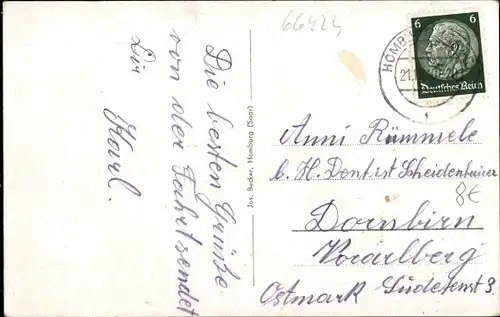 66424
Die besten Grüße
von der Fahrt sendet
Dir
Karl.
Jos. Becker, Homburg (Saar)
HOMBU
21.
6 6
Deutsches Reich
Anni Rümmele
b. H. Dentist Scheidenbauer
8€
Dornbirn
Vorarlberg
Ostmark Sudetenst 3